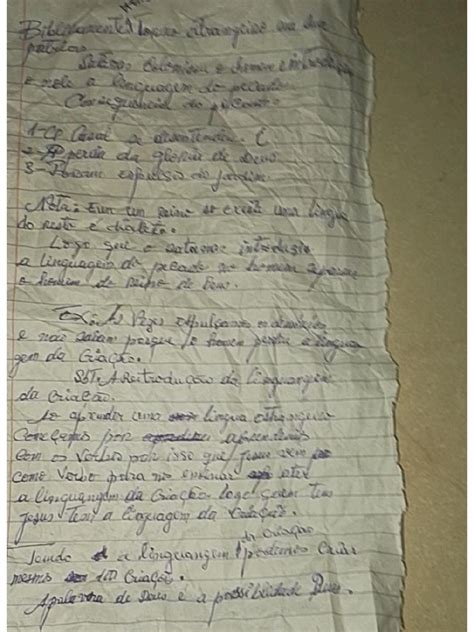 Biblicamente somos estrangeiros em sua
palavra
Satanás colonizou o homem e introduziu
nele a linguagem do pecado.
Consequência do pecado.
1- O Casal se desentendeu. C
2- perda da gloria de Deus
3- Foram expulsos do jardim.
Nota: Em um reino só existe uma lingua
do resto é dialeto.
Logo que o satanas introduziu
a linguagem do pecado no homem
o homem do reino de Deus.
Ex: As Vezes expulsamos os demónios
e não saiam porque o homem perdeu a lingua
gem da Criação.
A Reitrodução da linguangem
da Criação.
Ao aprender uma lingua estrangeira
Começamos por aprendemos
com os verbos por isso que Jesus vem
como Verbo para nos ensinar esta
a linguangem da Criação logo quem tem
Jesus Tem a linguagem da Criação.
Tendo a linguangem da Criação podemos Criar
mesmo da Criação.
A palavra de Deus é a possiblidade Deus.